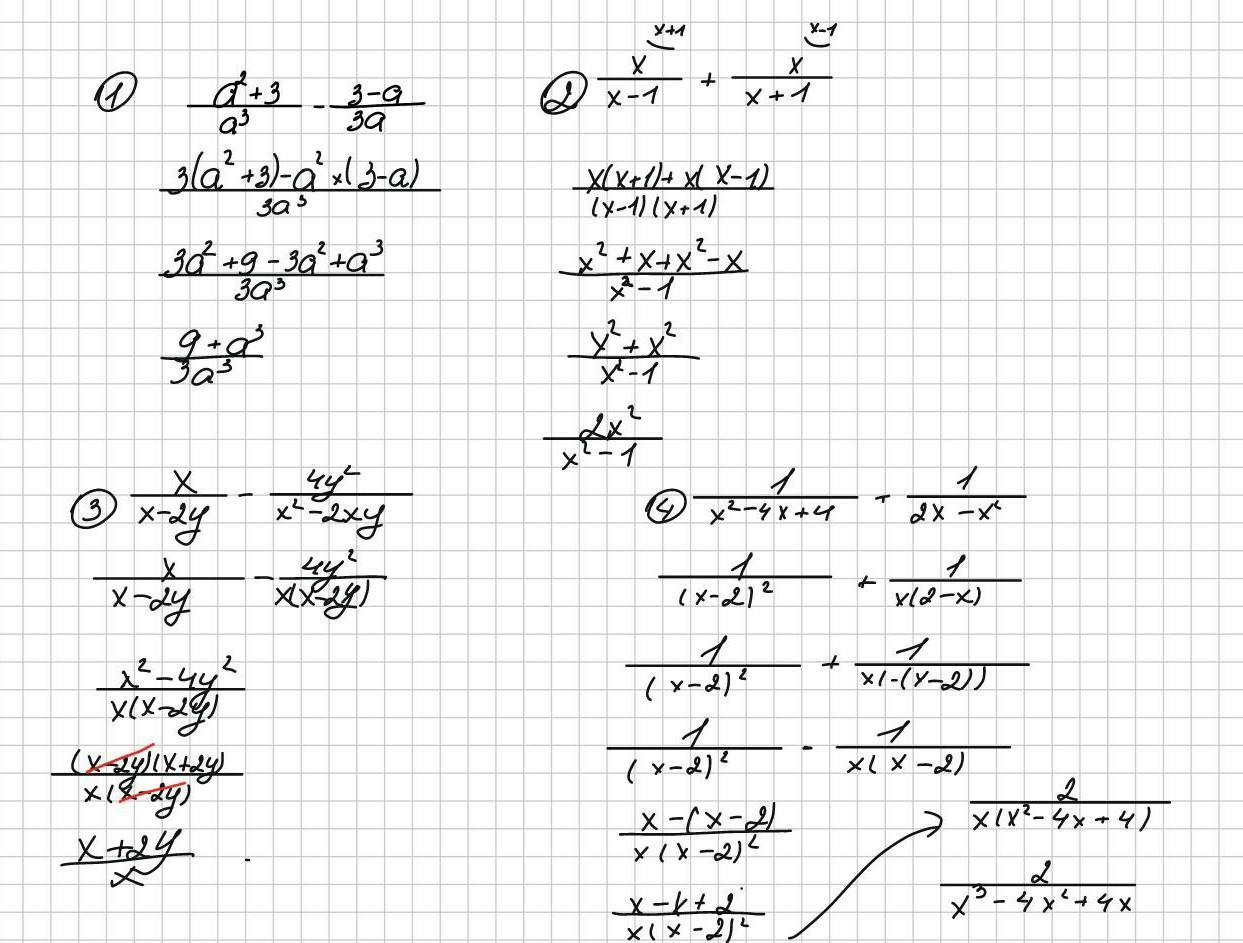 ① (a²+3)/a³ - (3-a)/3a
(3(a²+3)-a²×(3-a))/3a³
(3a²+9-3a²+a³)/3a³
(9+a³)/3a³
② x/(x-1) x+1 + x/(x+1) x-1
(x(x+1)+x(x-1))/((x-1)(x+1))
(x²+x+x²-x)/(x²-1)
(x²+x²)/(x²-1)
2x²/(x²-1)
③ x/(x-2y) - 4y²/(x²-2xy)
x/(x-2y) - 4y²/(x(x-2y))
(x²-4y²)/(x(x-2y))
((x-2y)(x+2y))/(x(x-2y))
(x+2y)/x
④ 1/(x²-4x+4) + 1/(2x-x²)
1/(x-2)² + 1/(x(2-x))
1/(x-2)² + 1/(x(-(x-2)))
1/(x-2)² - 1/(x(x-2))
(x-(x-2))/(x(x-2)²)
(x-x+2)/(x(x-2)²)
2/(x(x²-4x+4))
2/(x³-4x²+4x)